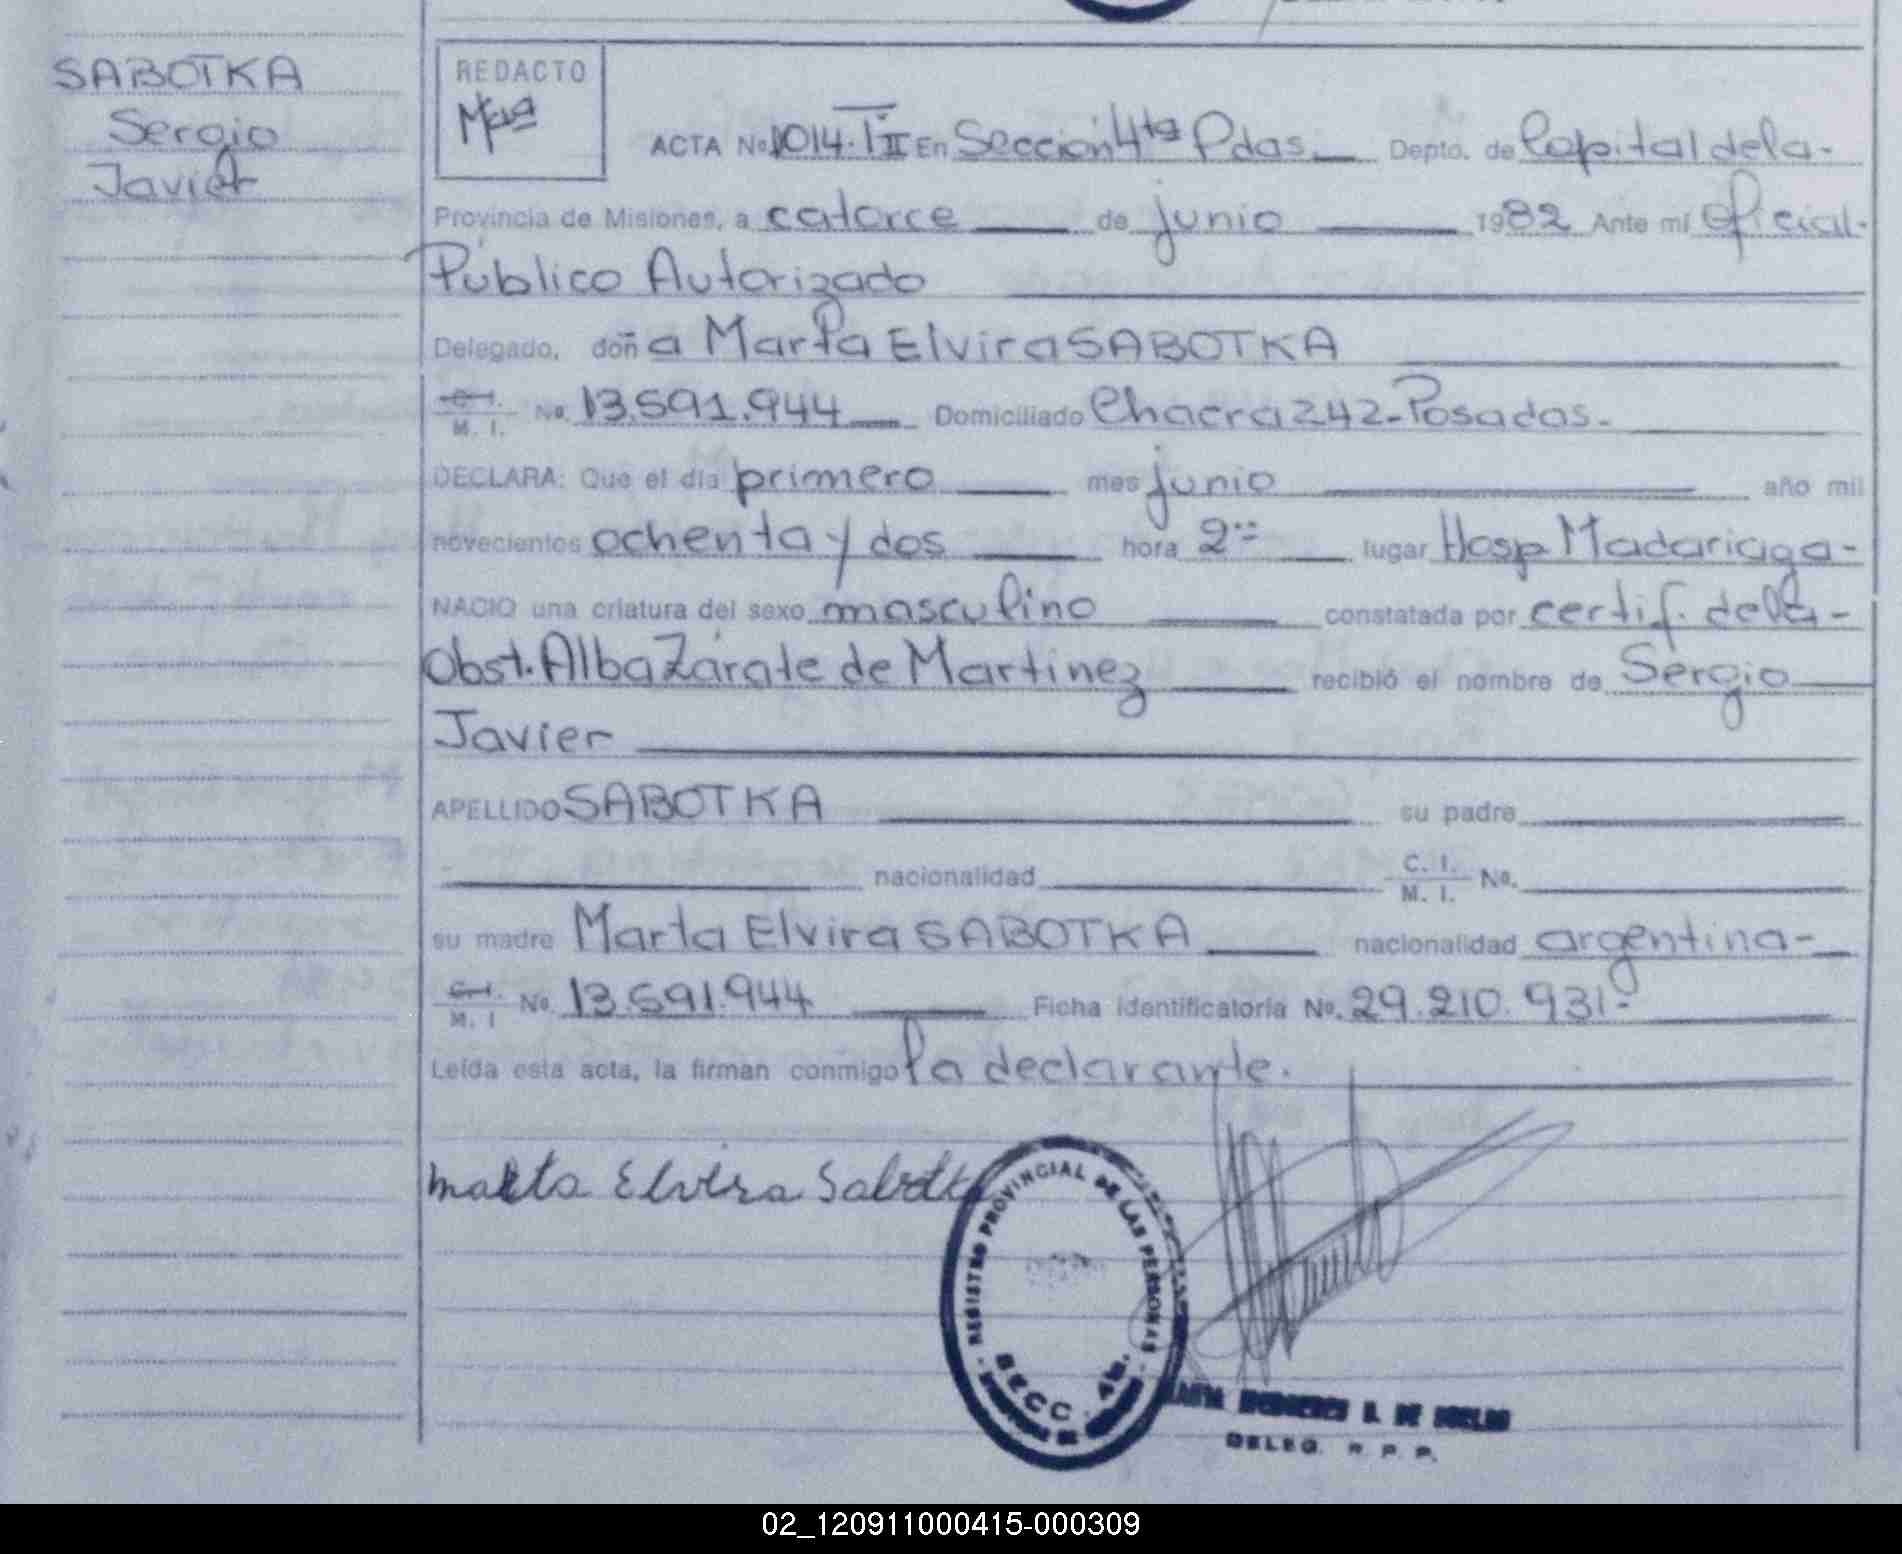 SABOTKA
Sergio
Javier
REDACTO
ACTA No. 1014. T II En Sección 4ta Pdas. Depto. de Capital de la-
Provincia de Misiones, a catorce de junio 1982 Ante mí Oficial-
Público Autorizado
Delegado, doña Marta Elvira SABOTKA
C.I. / M. I. No. 13.591.944 Domiciliado Chacra 242-Posadas-
DECLARA: Que el día primero mes junio año mil
novecientos ochenta y dos hora 2 lugar Hosp. Madariaga-
NACIO una criatura del sexo masculino constatada por certif. de la-
Obst. Alba Zárate de Martinez recibió el nombre de Sergio
Javier
APELLIDO SABOTKA su padre
nacionalidad C. I. / M. I. No.
su madre Marta Elvira SABOTKA nacionalidad argentina-
C.I. / M. I No. 13.591.944 Ficha identificatoria No. 29.210.931-
Leída esta acta, la firman conmigo la declarante.
Marta Elvira Sabotka
REGISTRO PROVINCIAL DE LAS PERSONAS
SECC. 4ta.
DELEG. R. P. P.
02_120911000415-000309